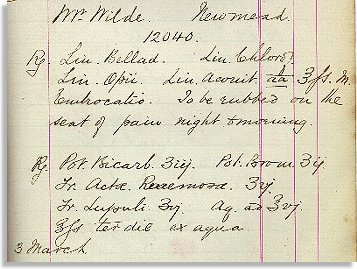 Mr. Wilde. Newmead.
12040.
Rx Lin. Bellad. Lin. Chlorof.
Lin. Opii. Lin. Aconit āā ʒfs. M.
Embrocatio. To be rubbed on the
seat of pain night & morning.
Rx Pot. Bicarb. ʒiij. Pot. Brom ʒij
Tr. Actæ Racemosæ. ʒvj.
Tr. Lupuli ʒvj. Aq ad ℥vj.
℥fs ter die ex aqua
3 March